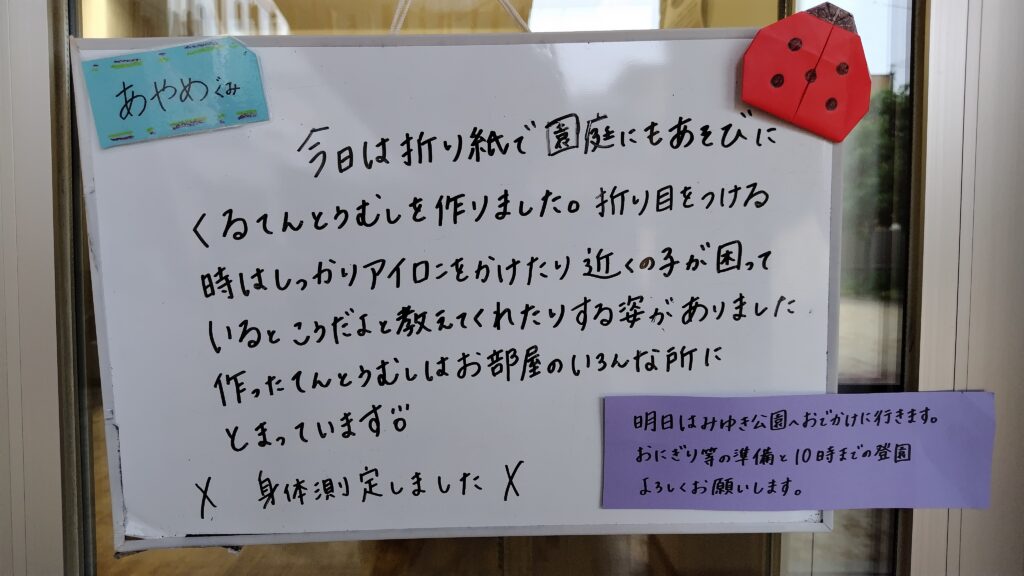 あやめぐみ
今日は折り紙で園庭にもあそびに
くるてんとうむしを作りました。折り目をつける
時はしっかりアイロンをかけたり近くの子が困って
いるとこうだよと教えてくれたりする姿がありました
作ったてんとうむしはお部屋のいろんな所に
とまっています
身体測定しました
明日はみゆき公園へおでかけに行きます。
おにぎり等の準備と10時までの登園
よろしくお願いします。